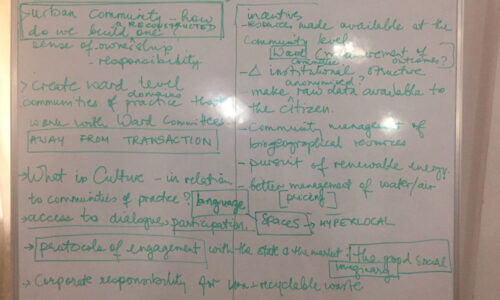 -urban community - how
a RECONSTRUCTED
do we build one?
sense of ownership
- responsibility
> create ward level
domains
communities of practice that
work with Ward Committees
AWAY FROM TRANSACTION
→ What is Culture - in relation
to communities of practice? language
→ access to dialogue, participation.
SPACES → HYPERLOCAL
→ protocols of engagement with the state & the market : the good social
imaginary
→ Corporate responsibility for non-recyclable waste
incentives
- resources made available at the
community level
Ward (measurement of
committee outcomes?
- Δ institutional structure
anonymised?
- make raw data available to
the citizen.
- community management of
biogeographical resources
- pursuit of renewable energy.
- better management of water/air
[pricing]